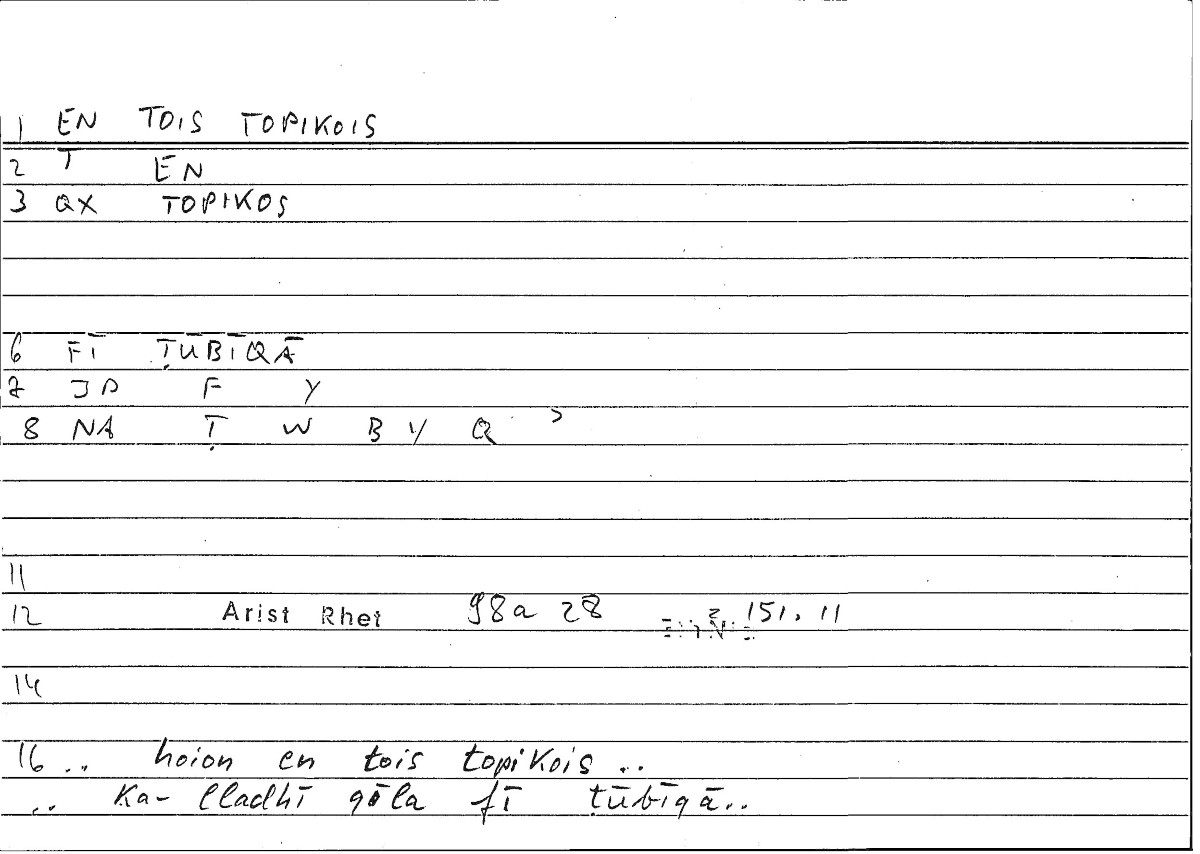 1 EN TOIS TOPIKOIS
2 T EN
3 QX TOPIKOS
6 FĪ ṬŪBĪQĀ
7 JP F Y
8 NA Ṭ W B Y Q ʾ
11
12 Arist Rhet 98a 28 2 151, 11
14
16 .. hoion en tois topikois ..
.. Ka- lladhī qāla fī ṭūbīqā..